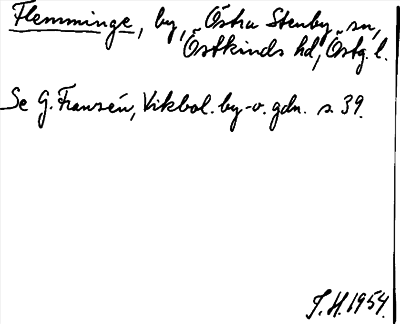 Flemminge, by, Östra Stenby sn,
Östkinds hd, Östg. l.
Se G. Franzén, Vikbol. by- o. gdn. s. 39.
S.H. 1954.